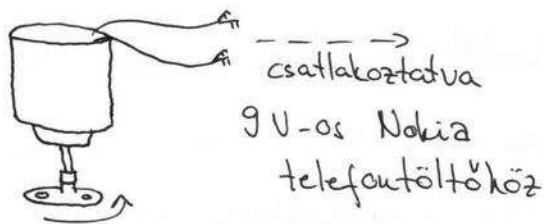 csatlakoztatva
9V-os Nokia
telefontöltőhöz